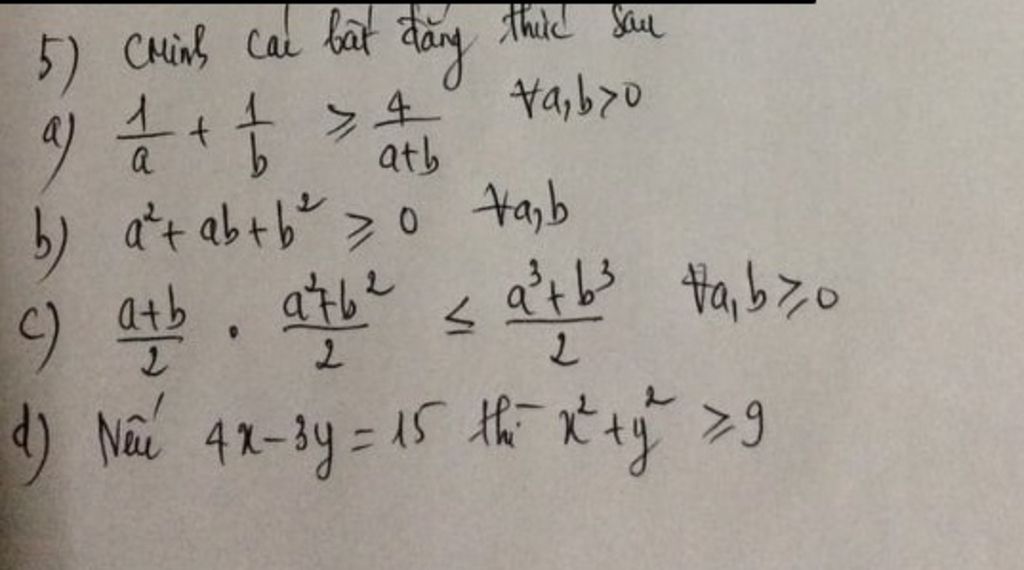 5) CMinh các bất đẳng thức sau
a) 1/a + 1/b ≥ 4/(a+b) ∀a,b>0
b) a²+ab+b² ≥ 0 ∀a,b
c) (a+b)/2 . (a²+b²)/2 ≤ (a³+b³)/2 ∀a,b≥0
d) Nếu 4x-3y=15 thì x²+y² ≥9